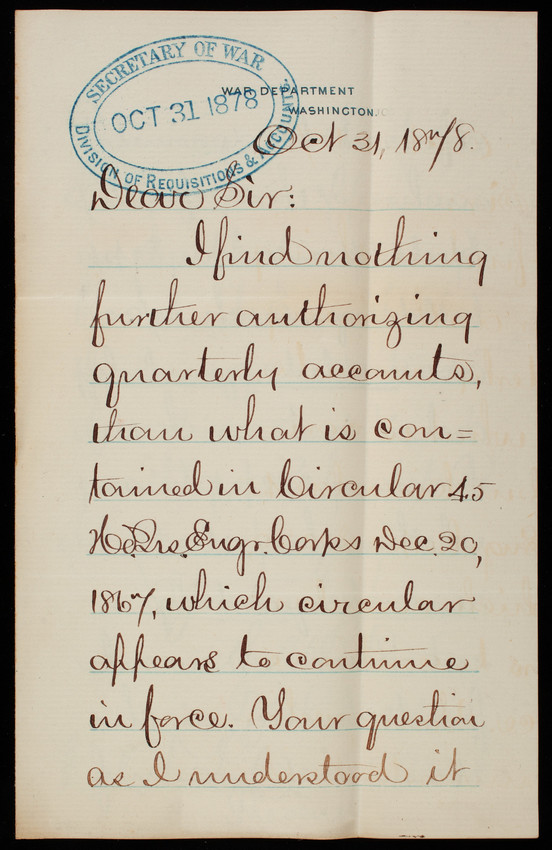 SECRETARY OF WAR
OCT 31 1878
DIVISION OF REQUISITIONS & ACCOUNTS.
WAR DEPARTMENT
WASHINGTON
Oct 31, 1878.
Dear Sir:
I find nothing
further authorizing
quarterly accounts,
than what is con=
tained in Circular 45
Hd.Qrs. Engr. Corps Dec. 20,
1867, which circular
appears to continue
in force. Your question
as I understood it